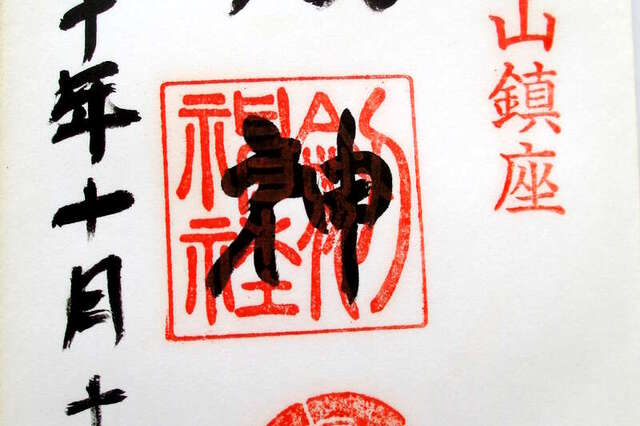 山鎮座
神
神社
十年十月十